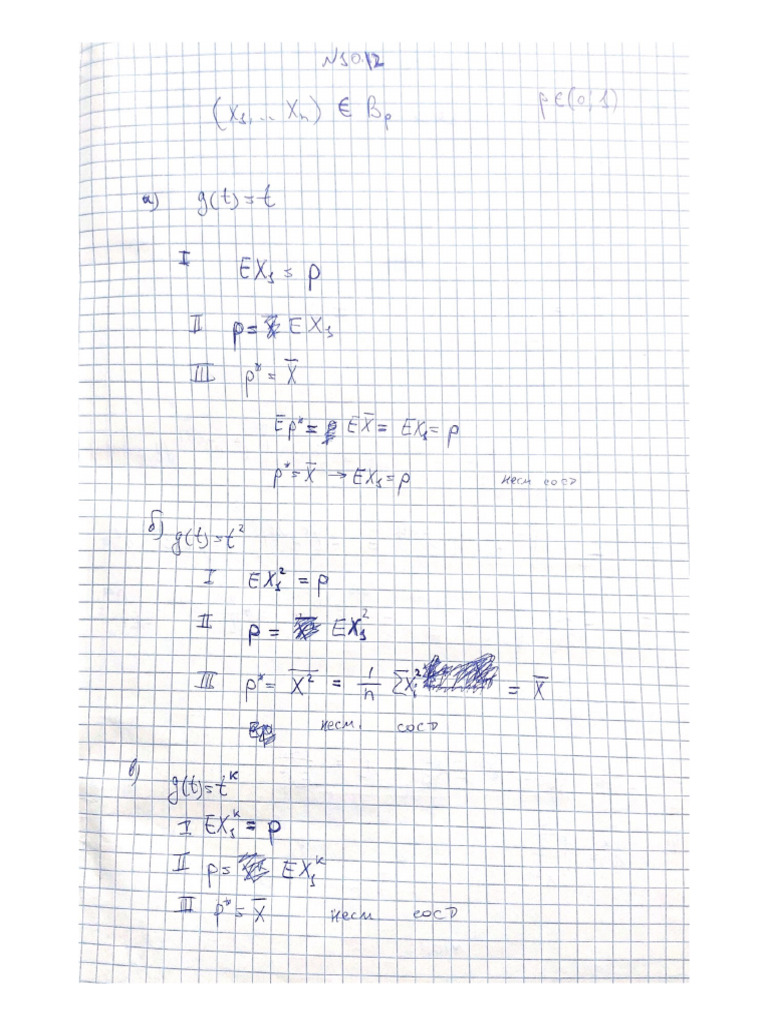 N10.12
(X₁, ... Xₙ) ∈ Bₚ p ∈ (0; 1)
а) g(t) = t
I EX₁ = p
II p = EX₁
III p* = X̅
Ep* = EX̅ = EX₁ = p
p* = X̅ → EX₁ = p несм сост
б) g(t) = t²
I EX₁² = p
II p = EX₁²
III p* = X̅² = 1/n ΣXᵢ² = X̅
несм. сост
в)
g(t) = tᵏ
I EX₁ᵏ = p
II p = EX₁ᵏ
III p* = X̅ несм сост